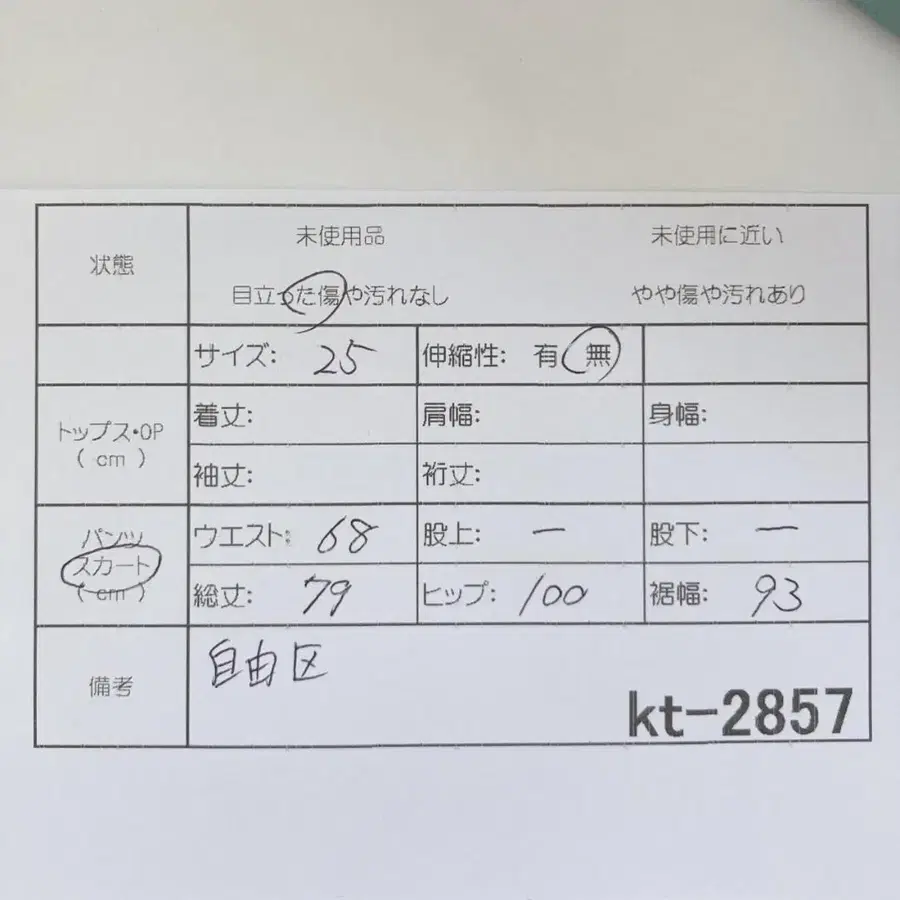 状態
未使用品 未使用に近い
目立った傷や汚れなし やや傷や汚れあり
サイズ: 25 伸縮性: 有 無
トップス・OP
(cm)
着丈: 肩幅: 身幅:
袖丈: 裄丈:
パンツ
スカート
(cm)
ウエスト: 68 股上: ー 股下: ー
総丈: 79 ヒップ: 100 裾幅: 93
備考
自由区
kt-2857